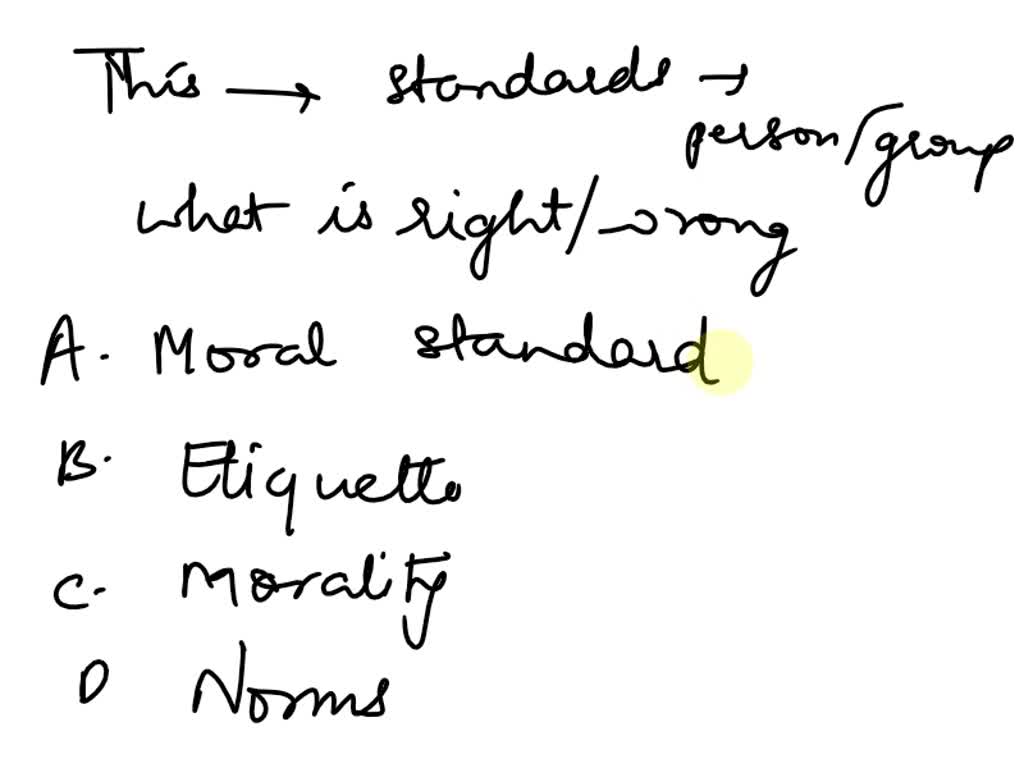 This → standards →
person/group
what is right/wrong
A. Moral standard
B. Etiquette
C. Morality
D Norms